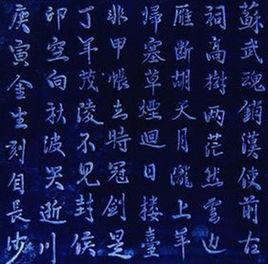 蘇武魂銷漢使前古
祠高樹兩茫然雲边
雁斷胡天月隴上羊
歸塞草煙迴日樓臺
非甲帳去時冠劍是
丁年茂陵不見封侯
印空向秋波哭逝川
庚寅金生刻自長沙